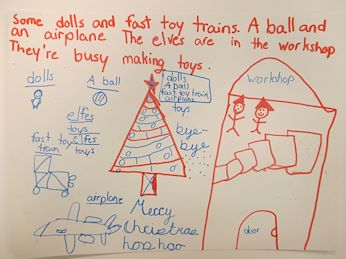 Some dolls and fast toy trains. A ball and
an airplane The elves are in the workshop
They're busy making toys.
dolls
A ball
dolls
A ball
fast toy train
airplane
toys
workshop
elfes
toys
elfes
toys
fast toy
train
bye-
bye
airplane
Merry
Christmas
hoo hoo
door